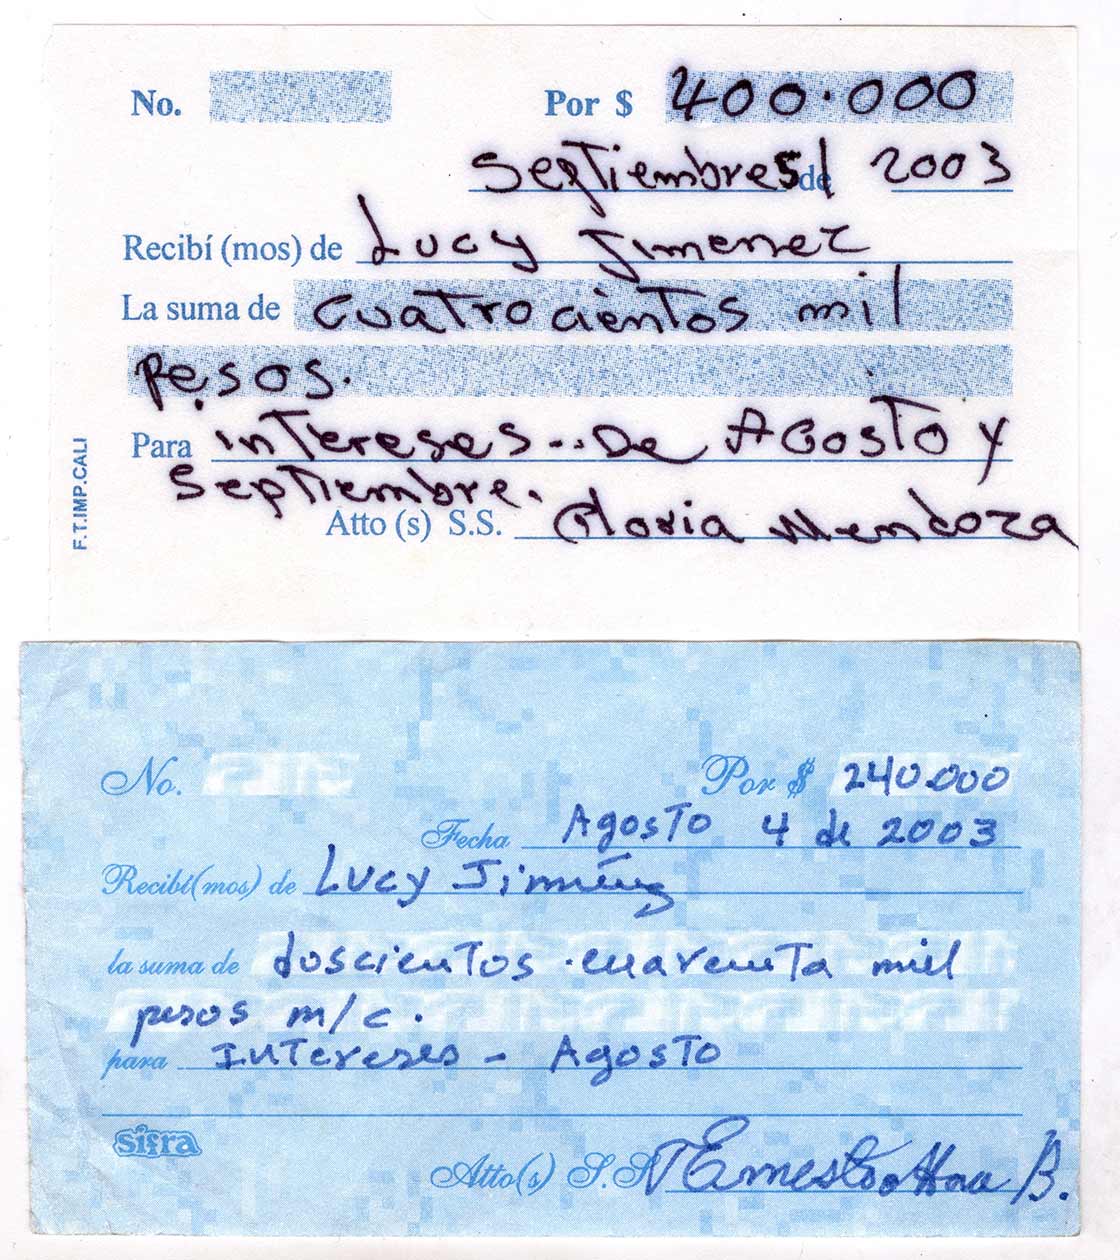 No. Por $ 400.000
Septiembre 5/ de 2003
Recibí (mos) de Lucy Jimenez
La suma de cuatrocientos mil
pesos.
Para intereses... De Agosto y
Septiembre.
Atto (s) S.S. Gloria Mendoza
F.T.IMP.CALI
No. Por $ 240.000
Fecha Agosto 4 de 2003
Recibí(mos) de Lucy Jiménez
la suma de doscientos cuarenta mil
pesos m/c.
para Intereses - Agosto
sifra
Atto(s) S.S. Ernesto B.